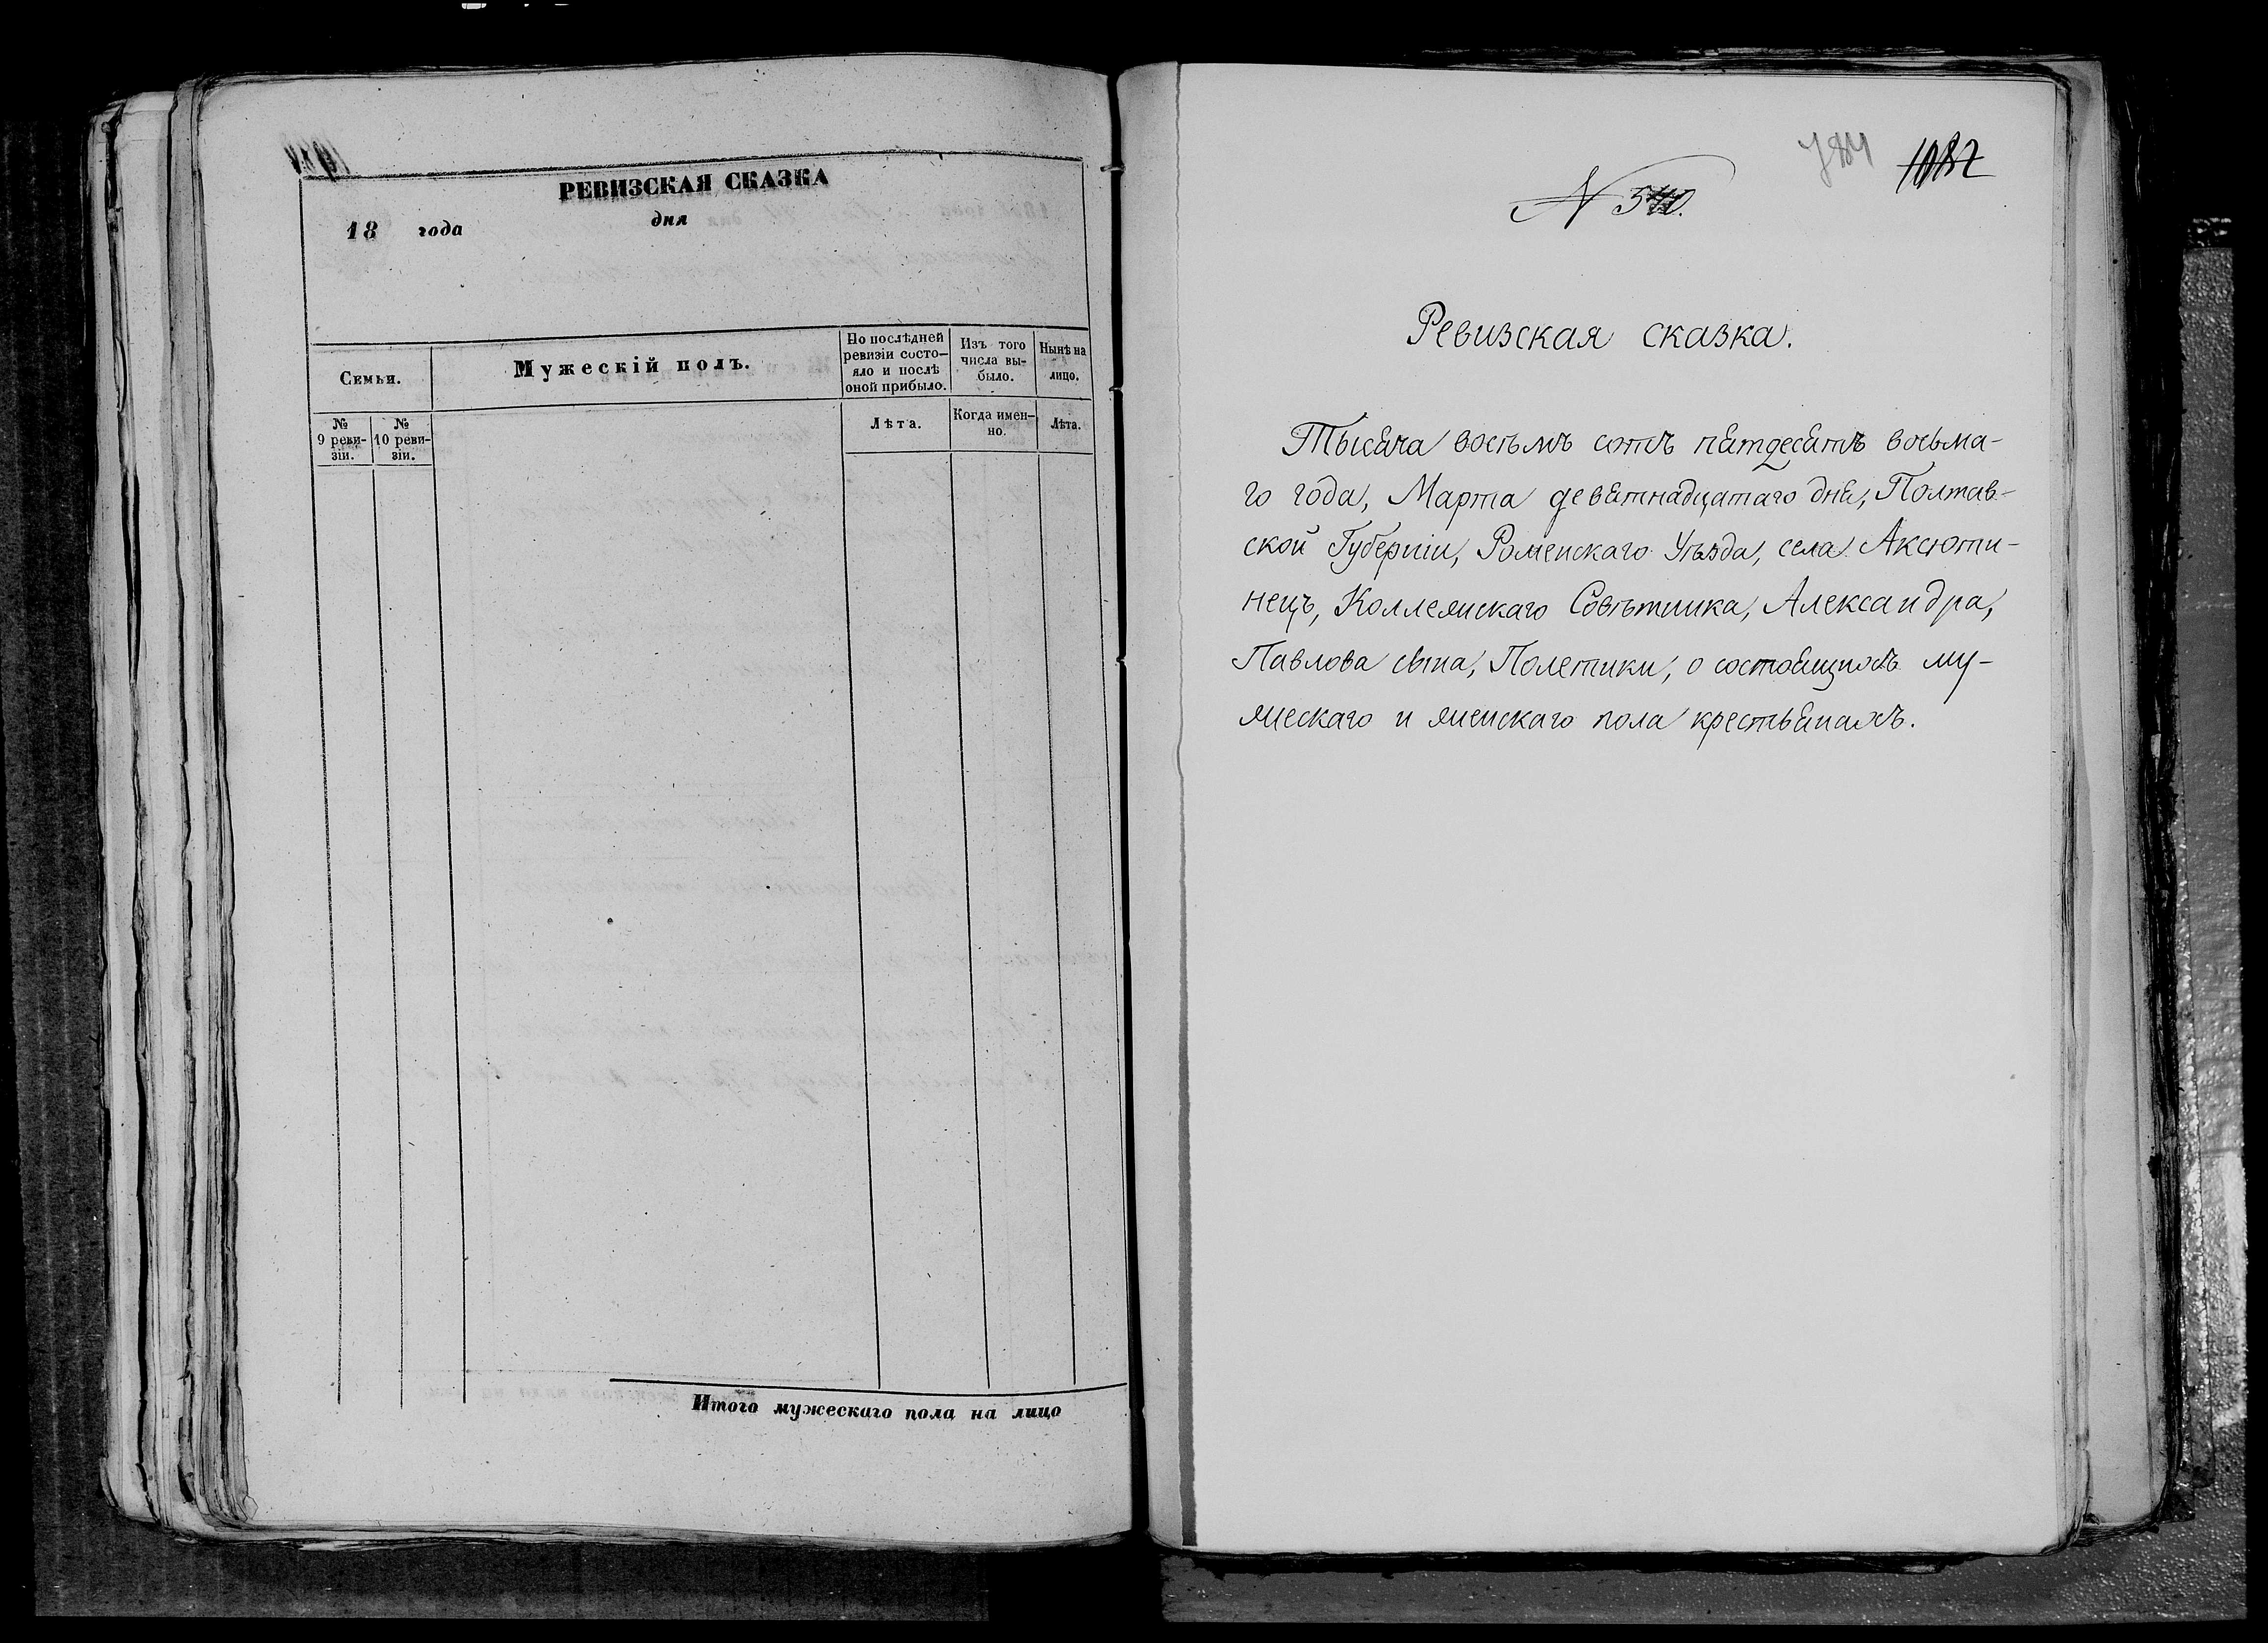 РЕВИЗСКАЯ СКАЗКА
18 года дня
Семьи.
Мужескій полъ.
По послѣдней ревизіи состо-
яло и послѣ
оной прибыло.
Изъ того
числа вы-
было.
Нынѣ на
лицо.
№
9 реви-
зіи.
№
10 реви-
зіи.
Лѣта.
Когда имен-
но.
Лѣта.
Итого мужескаго пола на лицо
784 1087
N 540.
Ревизская сказка.
Тысяча восъмъ сотъ пятдесятъ восьма-
го года, Марта девятнадцатаго дня, Полтав-
ской Губерніи, Роменскаго Уѣзда, села Аксюти-
нецъ, Коллежскаго Совѣтника, Александра,
Павлова сына, Полетики, о состоящихъ му-
жескаго и женскаго пола крестьянахъ.